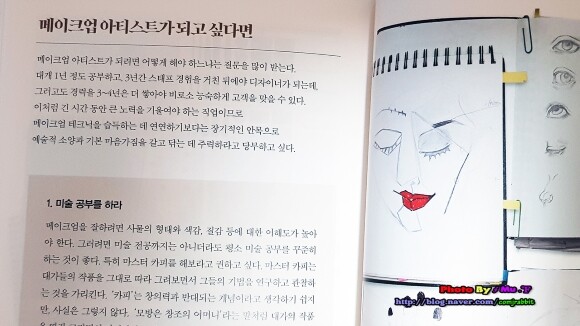 메이크업 아티스트가 되고 싶다면
메이크업 아티스트가 되려면 어떻게 해야 하느냐는 질문을 많이 받는다.
대개 1년 정도 공부하고, 3년간 스태프 경험을 거친 뒤에야 디자이너가 되는데,
그러고도 경력을 3~4년은 더 쌓아야 비로소 능숙하게 고객을 맞을 수 있다.
이처럼 긴 시간 동안 큰 노력을 기울여야 하는 직업이므로
메이크업 테크닉을 습득하는 데 연연하기보다는 장기적인 안목으로
예술적 소양과 기본 마음가짐을 갈고 닦는 데 주력하라고 당부하고 싶다.
1. 미술 공부를 하라
메이크업을 잘하려면 사물의 형태와 색감, 질감 등에 대한 이해도가 높아
야 한다. 그러려면 미술 전공까지는 아니더라도 평소 미술 공부를 꾸준히
하는 것이 좋다. 특히 마스터 카피를 해보라고 권하고 싶다. 마스터 카피는
대가들의 작품을 그대로 따라 그려보면서 그들의 기법을 연구하고 관찰하
는 것을 가리킨다. '카피'는 창의력과 반대되는 개념이라고 생각하기 쉽지
만, 사실은 그렇지 않다. '모방은 창조의 어머니'라는 말처럼 대가의 작품
Photo By//Mu.Y
http://blog.naver.com/comjrabbit